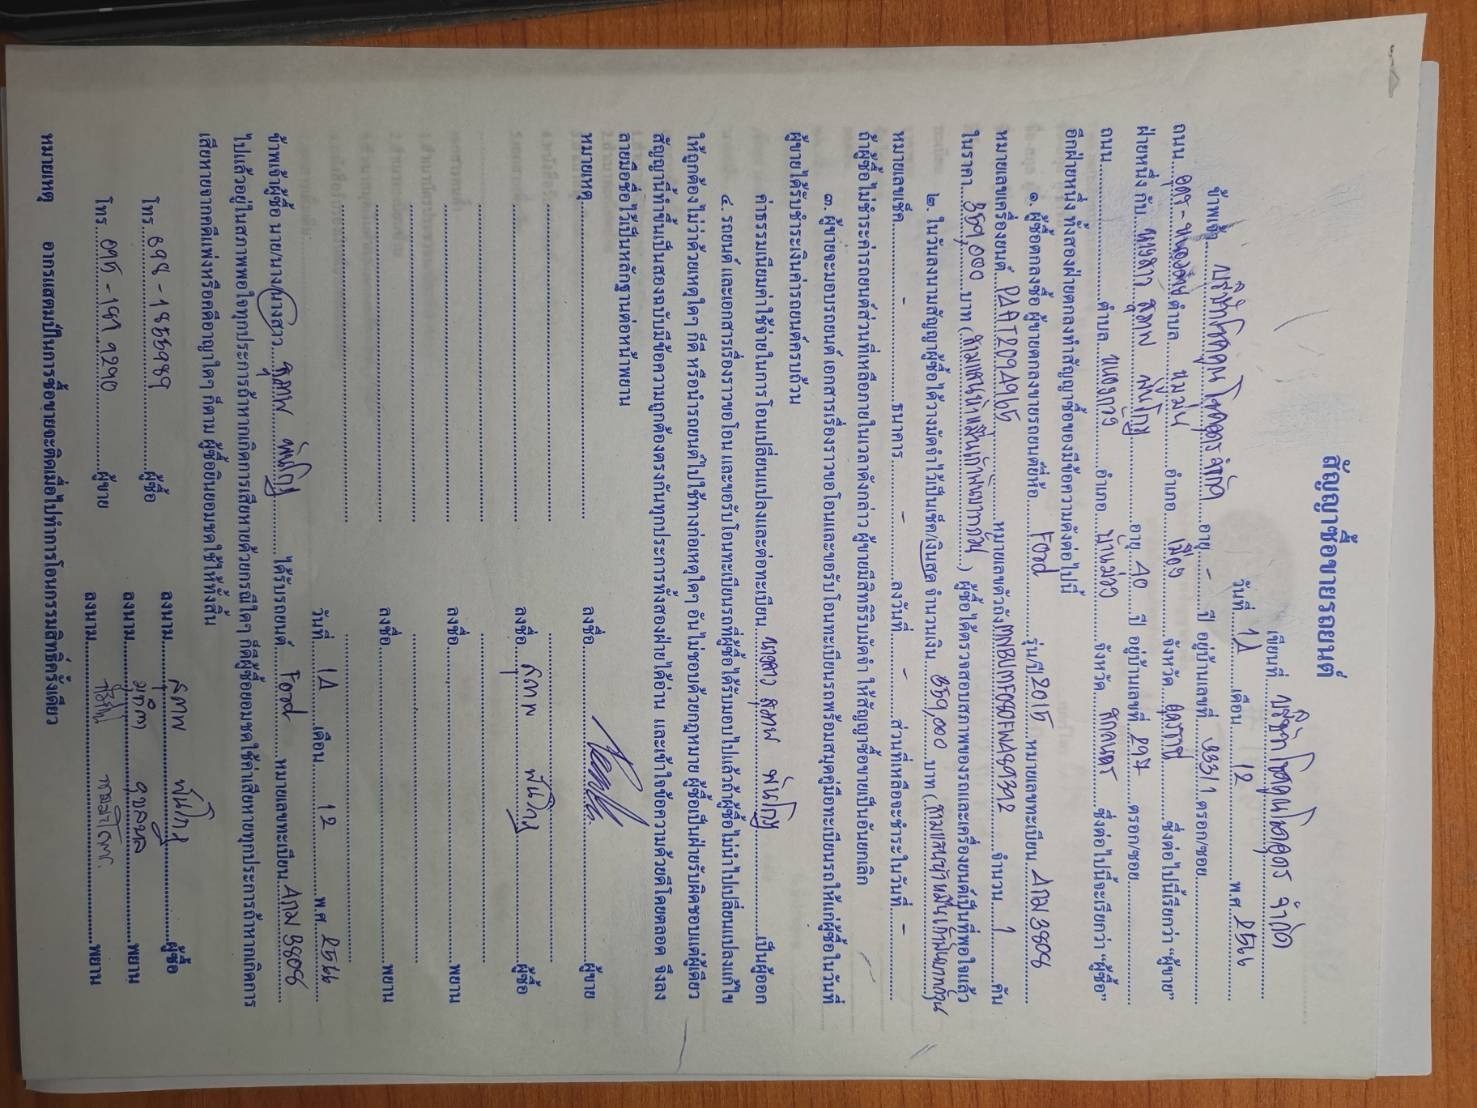 สัญญาซื้อขายรถยนต์
เขียนที่ บริษัทโชคคูนโชคอุดร จำกัด
วันที่ 12 เดือน 12 พ.ศ. 2566
ข้าพเจ้า บริษัทโชคคูนโชคอุดร จำกัด อายุ - ปี อยู่บ้านเลขที่ 333/1 ตรอก/ซอย
ถนน อุดร - ตำบล หมูม่น อำเภอ เมือง จังหวัด อุดรธานี ซึ่งต่อไปนี้เรียกว่า "ผู้ขาย"
ฝ่ายหนึ่ง กับ นางสาว สุภาพ พันโกฎ อายุ 40 ปี อยู่บ้านเลขที่ ตรอก/ซอย
ถนน ตำบล หนองกวั่ง อำเภอ บ้านม่วง จังหวัด สกลนคร ซึ่งต่อไปนี้จะเรียกว่า "ผู้ซื้อ"
อีกฝ่ายหนึ่ง ทั้งสองฝ่ายตกลงทำสัญญาซื้อของมีข้อความดังต่อไปนี้
๑. ผู้ซื้อตกลงซื้อ ผู้ขายตกลงขายรถยนต์ยี่ห้อ Ford รุ่น/ปี 2015 หมายเลขทะเบียน
หมายเลขเครื่องยนต์ หมายเลขตัวถัง จำนวน 1 คัน
ในราคา 359,000 บาท ( ) ผู้ซื้อได้ตรวจสอบสภาพของรถและเครื่องยนต์เป็นที่พอใจแล้ว
๒. ในวันลงนามสัญญาผู้ซื้อ ได้วางมัดจำไว้เป็นเช็ค/เงินสด จำนวนเงิน 359,000 บาท (สามแสนห้าหมื่นเก้าพันบาทถ้วน
หมายเลขเช็ค - ธนาคาร - ลงวันที่ - ส่วนที่เหลือจะชำระในวันที่ -
ถ้าผู้ซื้อไม่ชำระค่ารถยนต์ส่วนที่เหลือภายในเวลาดังกล่าว ผู้ขายมีสิทธิริบมัดจำ ให้สัญญาซื้อขายเป็นอันยกเลิก
๓. ผู้ขายจะมอบรถยนต์ เอกสารเรื่องราวขอโอนและขอรับโอนทะเบียนรถพร้อมสมุดคู่มือทะเบียนรถให้แก่ผู้ซื้อในวันที่
ผู้ขายได้รับชำระเงินค่ารถยนต์ครบถ้วน
ค่าธรรมเนียมค่าใช้จ่ายในการโอนเปลี่ยนแปลงและต่อทะเบียน นางสาว สุภาพ พันโกฎ เป็นผู้ออก
๔. รถยนต์ และเอกสารเรื่องราวขอโอน และขอรับโอนทะเบียนรถที่ผู้ซื้อได้รับมอบไปแล้วถ้าผู้ซื้อไม่นำไปเปลี่ยนแปลงแก้ไข
ให้ถูกต้อง ไม่ว่าด้วยเหตุใดๆ ก็ดี หรือนำรถยนต์ไปใช้ทางก่อเหตุใดๆ อัน ไม่ชอบด้วยกฎหมาย ผู้ซื้อเป็นฝ่ายรับผิดชอบแต่ผู้เดียว
สัญญานี้ทำขึ้นเป็นสองฉบับมีข้อความถูกต้องตรงกันทุกประการทั้งสองฝ่ายได้อ่าน และเข้าใจข้อความด้วยดีโดยตลอด จึงลง
ลายมือชื่อไว้เป็นหลักฐานต่อหน้าพยาน
หมายเหตุ
ลงชื่อ ผู้ขาย
ลงชื่อ สุภาพ พันโกฎ ผู้ซื้อ
ลงชื่อ พยาน
ลงชื่อ พยาน
วันที่ 12 เดือน 12 พ.ศ 2566
ข้าพเจ้าผู้ซื้อ นาย/นาง/นางสาว สุภาพ พันโกฎ ได้รับรถยนต์ Ford หมายเลขทะเบียน
ไปแล้วอยู่ในสภาพพอใจทุกประการถ้าหากเกิดการเสียหายด้วยกรณีใดๆ ก็ดีผู้ซื้อยอมชดใช้ค่าเสียหายทุกประการถ้าหากเกิดการ
เสียหายจากคดีแพ่งหรือคดีอาญาใดๆ ก็ตาม ผู้ซื้อยินยอมชดใช้ให้ทั้งสิ้น
โทร. ผู้ซื้อ ลงนาม สุภาพ พันโกฎ ผู้ซื้อ
โทร. ผู้ขาย ลงนาม พยาน
ลงนาม พยาน
หมายเหตุ อากรแสตมป์ในการซื้อขายจะติดเมื่อไปทำการโอนกรรมสิทธิ์ครั้งเดียว